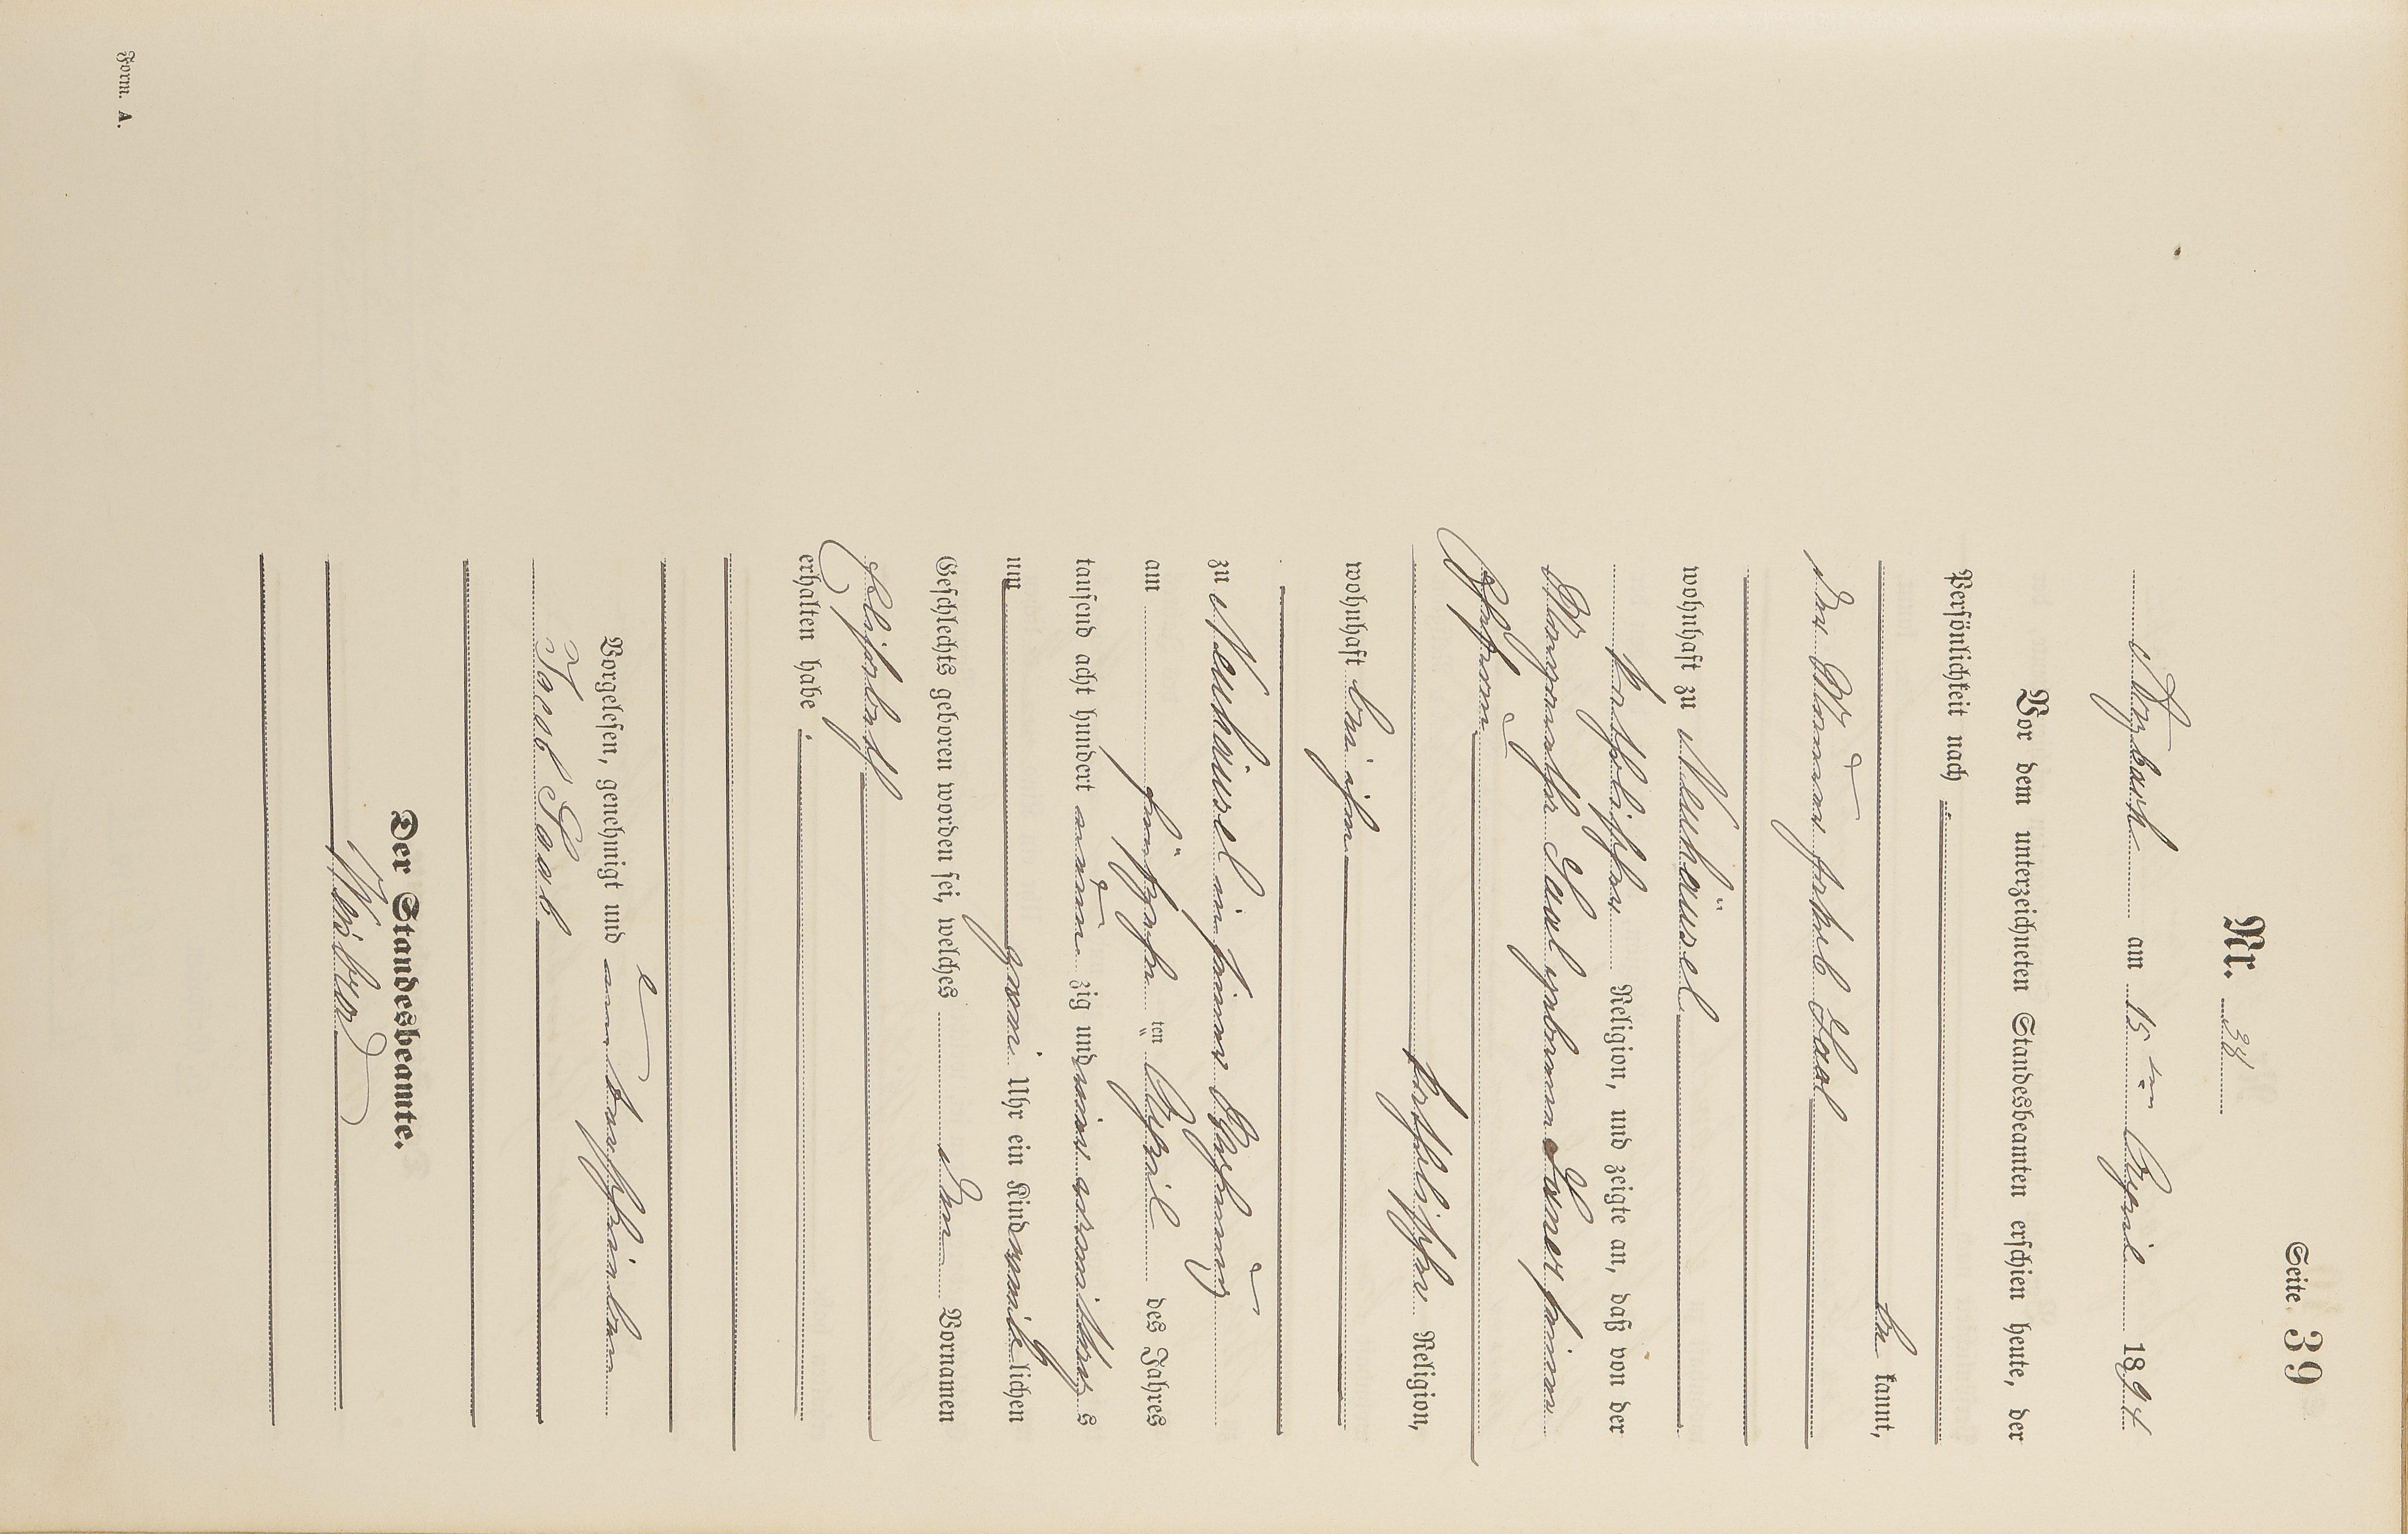 Seite 39
Nr. 38
Arzbach am 15ten April 1894
Vor dem unterzeichneten Standesbeamten erschien heute, der
Persönlichkeit nach
be kannt,
der Maurer Jakob Saal
wohnhaft zu Neuhäusel
katholischer Religion, und zeigte an, daß von der
Margarethe Saal geborenen seiner
Ehefrau
katholischer Religion,
wohnhaft bei ihm
zu Neuhäusel in seiner Wohnung
am fünfzehn ten April des Jahres
tausend acht hundert neun zig und vier vormittags
um zwei Uhr ein Kind weib lichen
Geschlechts geboren worden sei, welches den Vornamen
Elisabeth
erhalten habe.
Vorgelesen, genehmigt und unterschrieben
Jacob Saal
Der Standesbeamte.
Form. A.